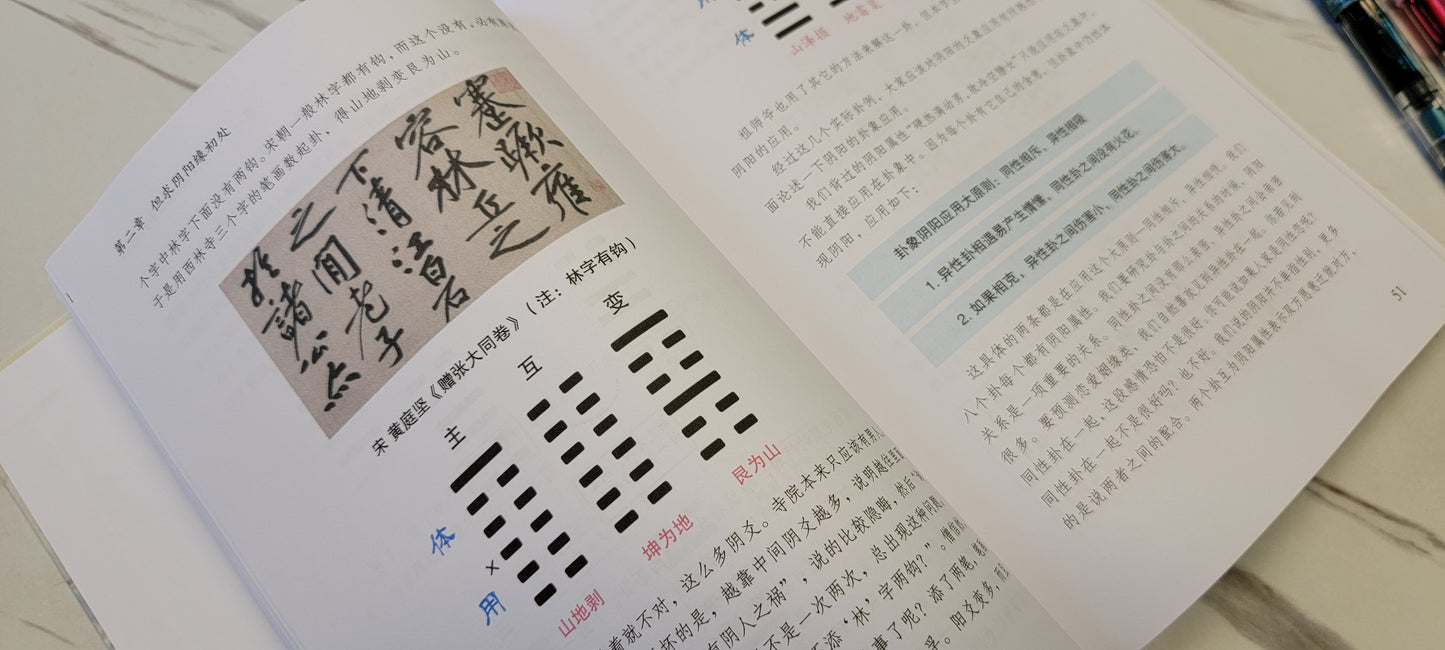 第二章 但求阴阳缘初处
个字中林字下面没有两钩。宋朝一般林字都有钩，而这个没有，
于是用西林寺三个字的笔画数起卦，得山地剥变艮为山。
蹇噘雍
容林丘之
下清江白石
之间老子
于诸公亦
宋 黄庭坚《赠张大同卷》（注：林字有钩）
主 互 变
体
×
用
山地剥 坤为地 艮为山
着就不对，这么多阴爻。寺院本来只应该有男
坏的是，越靠中间阴爻越多，说明越往里
有阴人之祸”，说的比较隐晦，然后
不是一次两次，总出现这种问题
不添‘林’字两钩？”。僧
事了呢？添了两笔，
孚。阳爻变多，
用
体
山泽损 地雷复
祖师爷也用了其它的方法来解这一卦，
阴阳的应用。
经过这几个实际卦例，大家应该对阴阳的爻象应用有所
面论述一下阴阳的卦象应用。
我们背过的阴阳属性
不能直接应用在卦象中。因为每个卦有它自己的
现阴阳，应用如下：
卦象阴阳应用大原则：同性相斥，异性相吸
1. 异性卦相遇易产生情愫，同性卦之间没有火花。
2. 如果相克，异性卦之间伤害小，同性卦之间伤害大。
这具体的两条都是在应用这个大原则—同性相斥，异性相吸。我们
八个卦每个都有阴阳属性。我们要研究卦与卦之间的关系的时候，阴阳
关系是一项重要的关系。同性卦之间没有那么亲密，异性卦之间会亲密
很多。要预测恋爱姻缘类，我们自然喜欢见到异性卦在一起。你若见到
同性卦在一起，这段感情恐怕不是很好。你不能说如果人家是同性恋呢？
同性卦在一起不是很好吗？也不好。我们说的阴阳并不单指性别，更多
的是说两者之间的配合。两个卦互为阴阳属性表示双方愿意迁就对方，
51